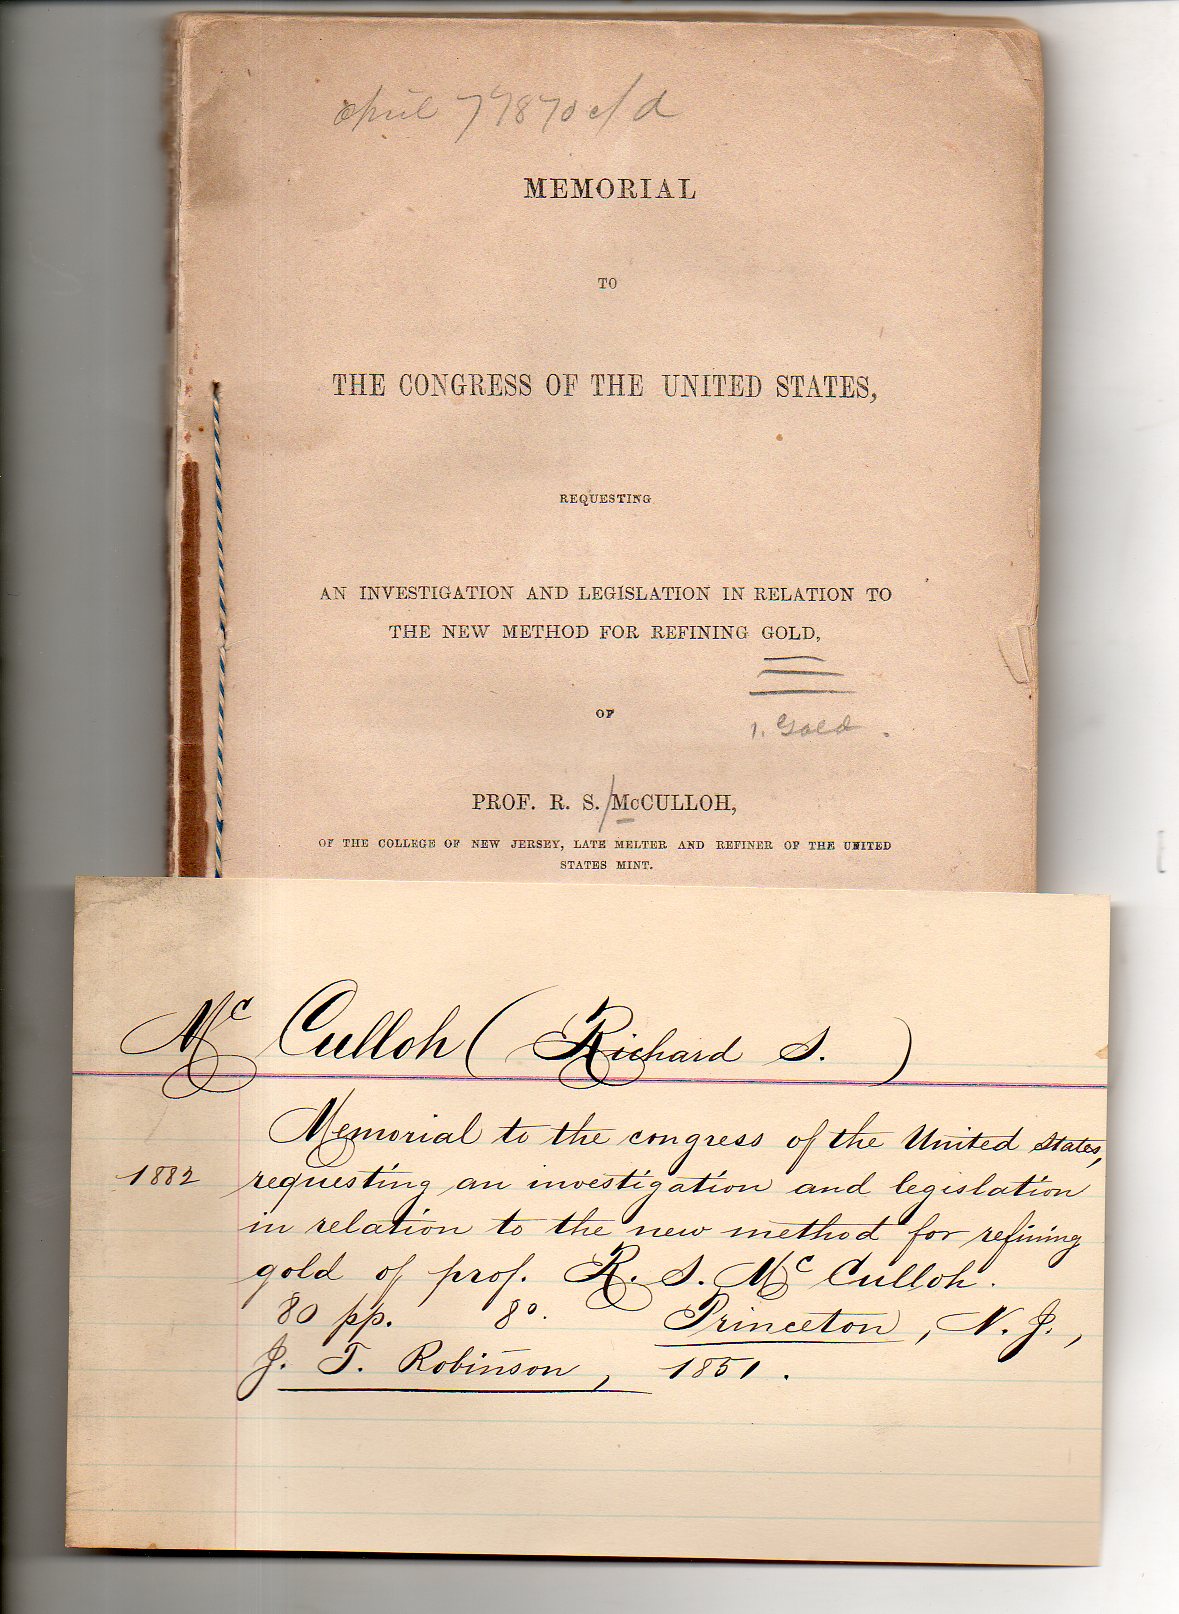 April 7 1870 c/d
MEMORIAL
TO
THE CONGRESS OF THE UNITED STATES,
REQUESTING
AN INVESTIGATION AND LEGISLATION IN RELATION TO
THE NEW METHOD FOR REFINING GOLD,
OF
1. Gold.
PROF. R. S. McCULLOH,
OF THE COLLEGE OF NEW JERSEY, LATE MELTER AND REFINER OF THE UNITED
STATES MINT.
Mc Culloh (Richard S.)
Memorial to the congress of the United States,
1882 requesting an investigation and legislation
in relation to the new method for refining
gold of prof. R. S. Mc Culloh.
80 pp. 8o. Princeton, N. J.,
J. T. Robinson, 1851.